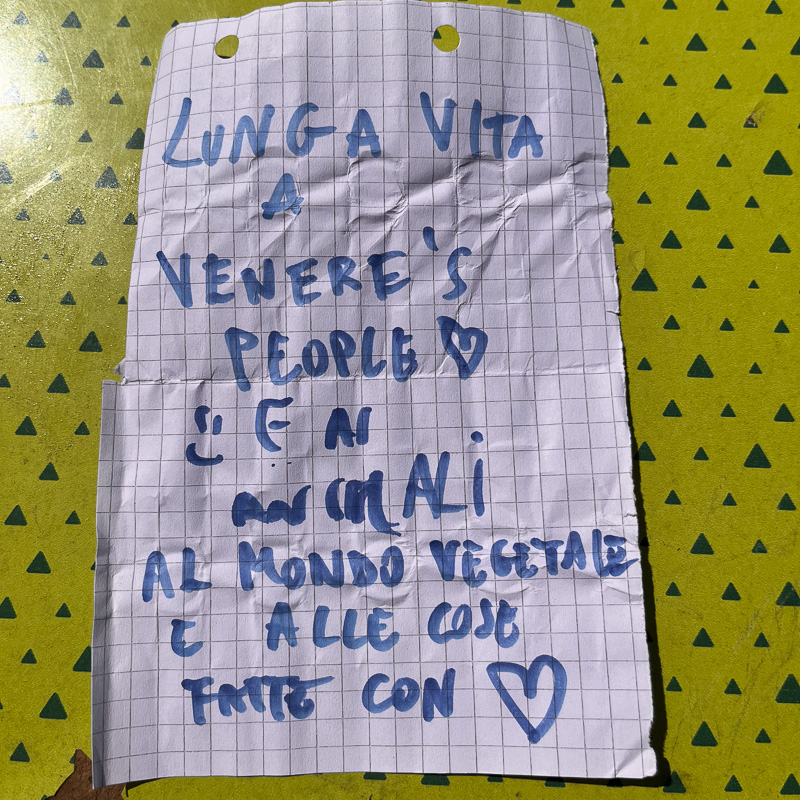 LUNGA VITA
A
VENERE'S
PEOPLE ♡
E AI
ANIMALI
AL MONDO VEGETALE
E ALLE COSE
FATTE CON ♡